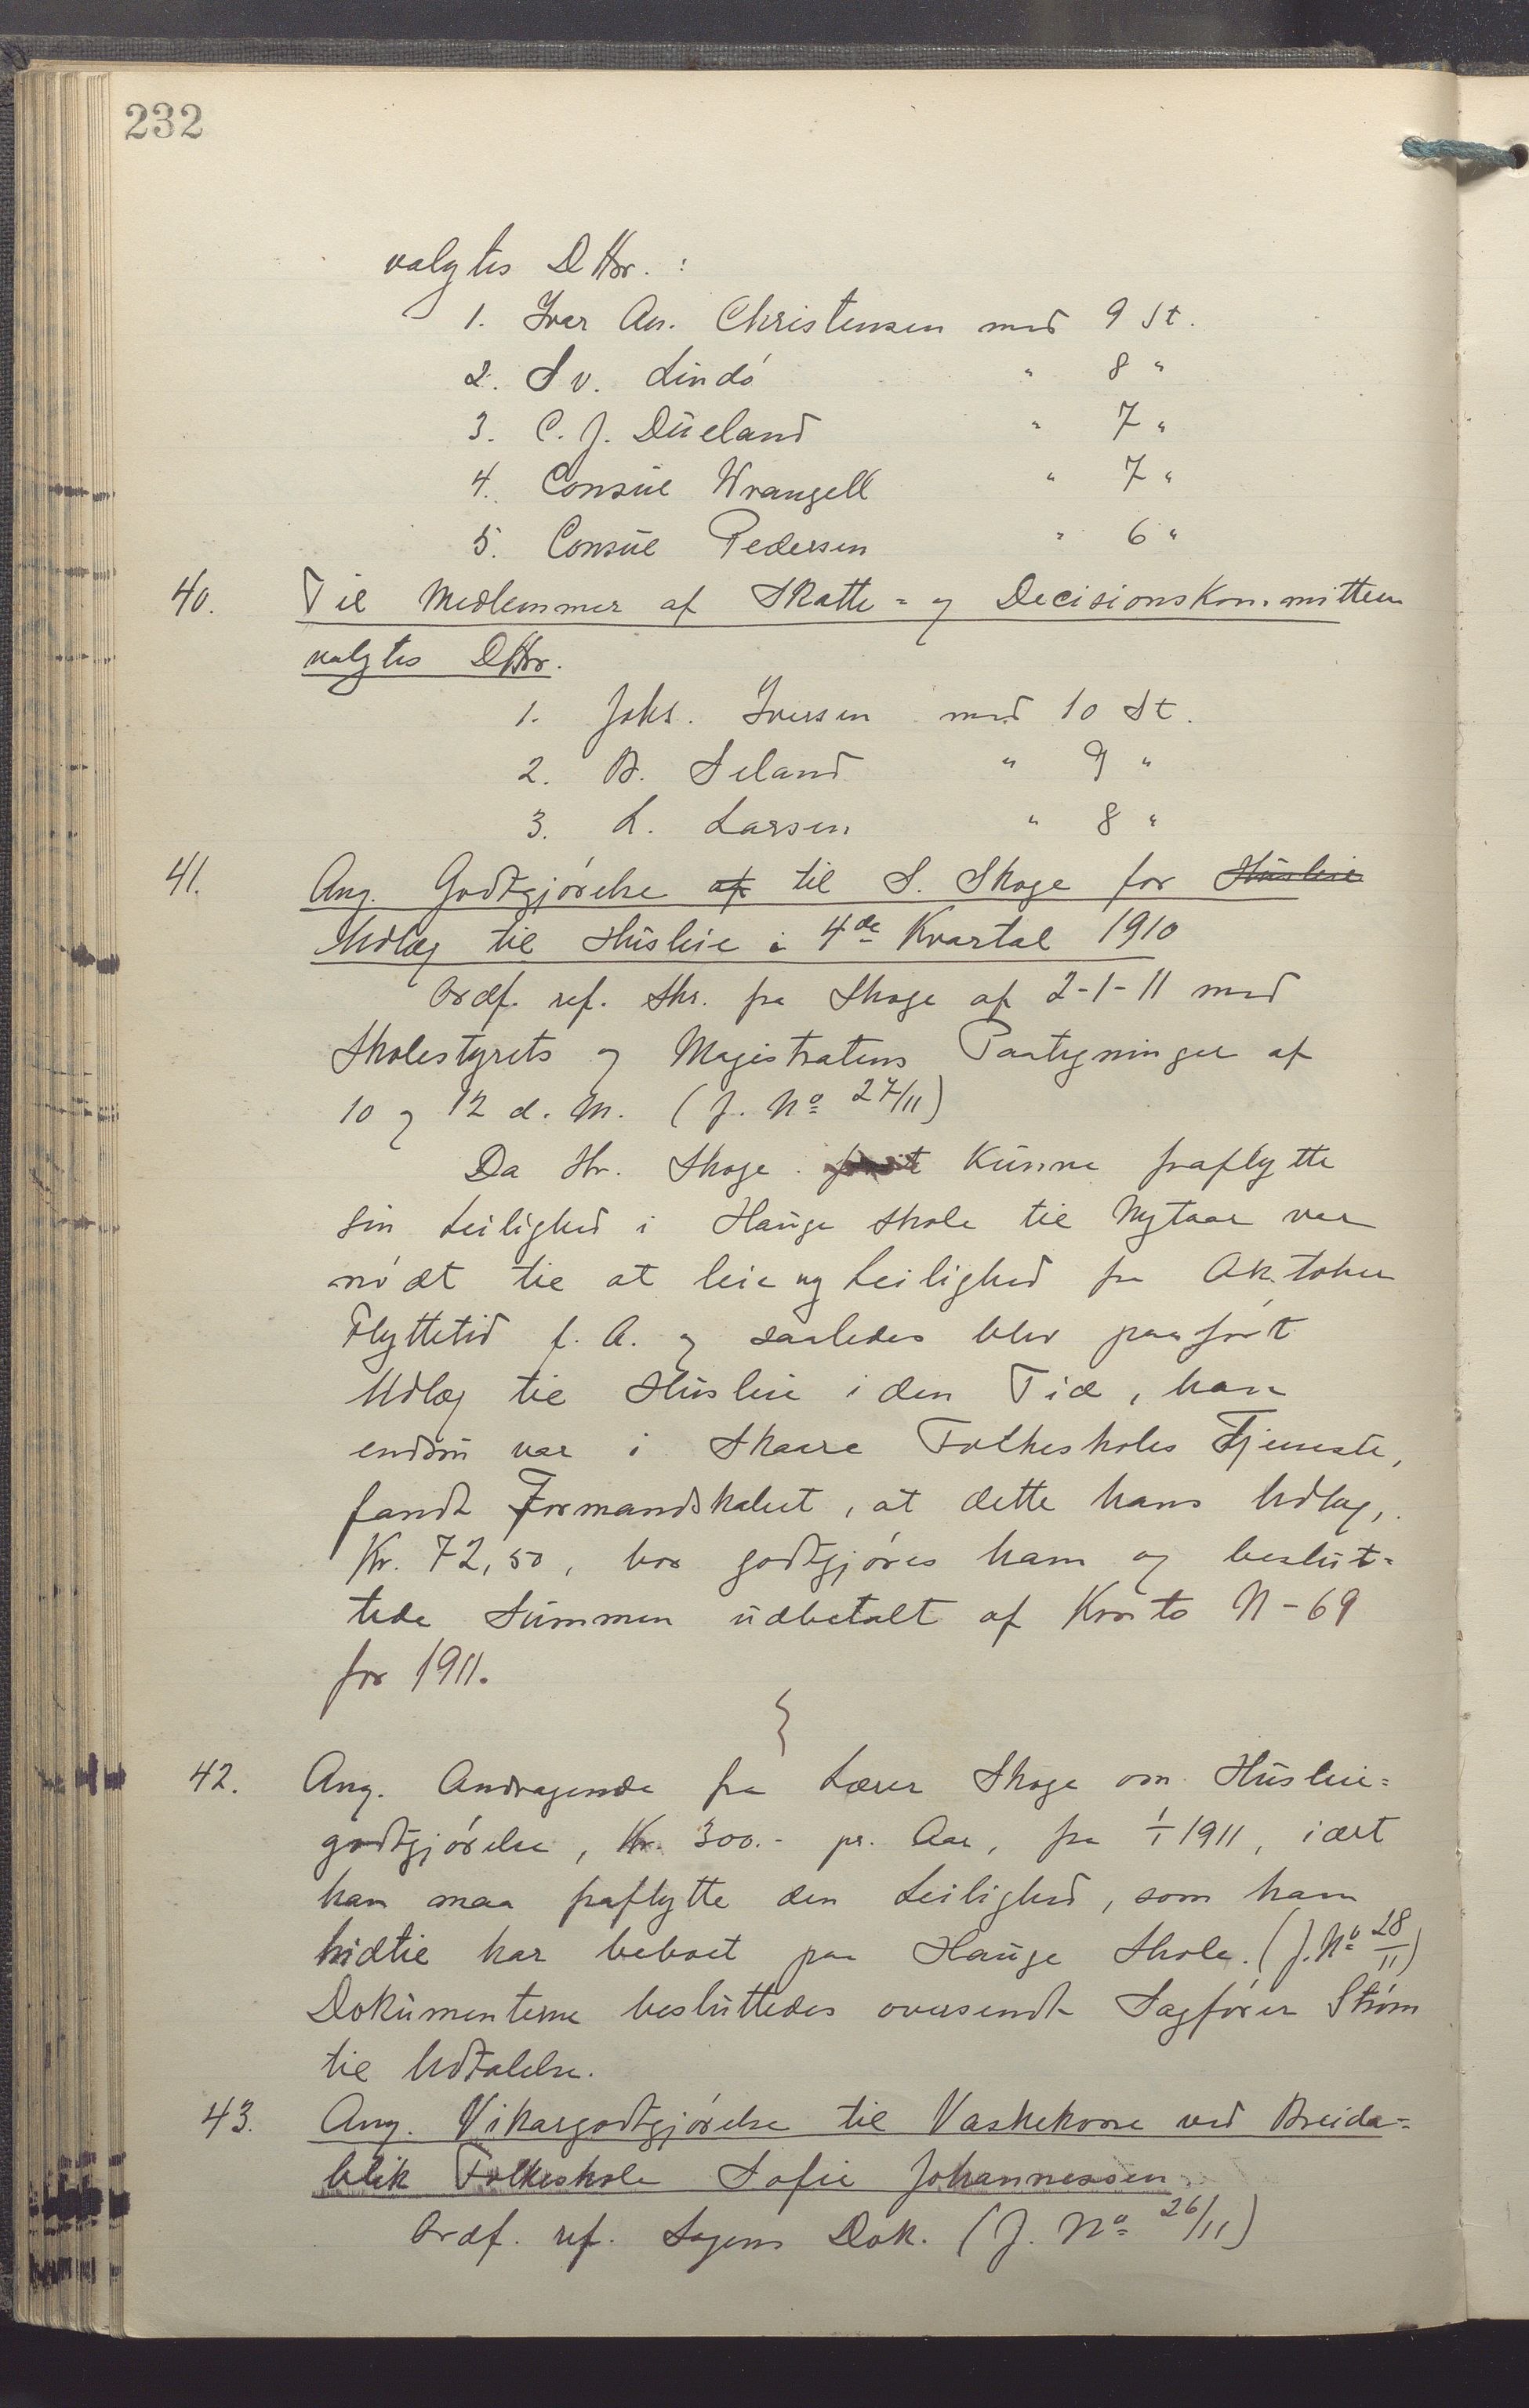 232
valgtes DHr. :
1. Iver An. Christensen med 9 St.
2. Sv. Lindø " 8 "
3. C. J. Dueland " 7 "
4. Consul Wrangell " 7 "
5. Consul Pedersen " 6 "
40. Til Medlemmer af Skatte= og Decisionskommitteen
valgtes DHrr.
1. Johs. Iversen med 10 St.
2. B. Seland " 9 "
3. L. Larsen " 8 "
41. Ang. Godtgjørelse af til S. Skoge for Husleie
Udlæg til Husleie i 4de Kvartal 1910
Ordf. ref. Skr. fra Skoge af 2-1-11 med
Skolestyrets og Magistratens Paategninger af
10 og 12 d. M. (J. No 27/11)
Da Hr. Skoge kunne fraflytte
sin Leilighed i Hauge skole til Nytaar var
nødt til at leie ny Leilighed fra Oktober
Flyttetid f. A. og saaledes blev paaført
Udlæg til Husleie i den Tid, han
endnu var i Skaare Folkeskoles Tjeneste,
fandt Formandskabet, at dette hans Udlæg,
Kr. 72,50, bør godtgjøres ham og beslut=
tede Summen udbetalt af Konto N-69
for 1911.
42. Ang. Andragende fra Lærer Skoge om Husleie=
godtgjørelse, Kr. 300.- pr. Aar, fra 1/1 1911, idet
han maa fraflytte den Leilighed, som ham
hidtil har beboet paa Hauge Skole. (J. No 28/11)
Dokumenterne besluttedes oversendt Sagfører Strøm
til Udtalelse.
43. Ang. Vikargodtgjørelse til Vaskekone ved Breida=
blik Folkeskole Sofie Johannessen.
Ordf. ref. Sagens Dok. (J. No 26/11)